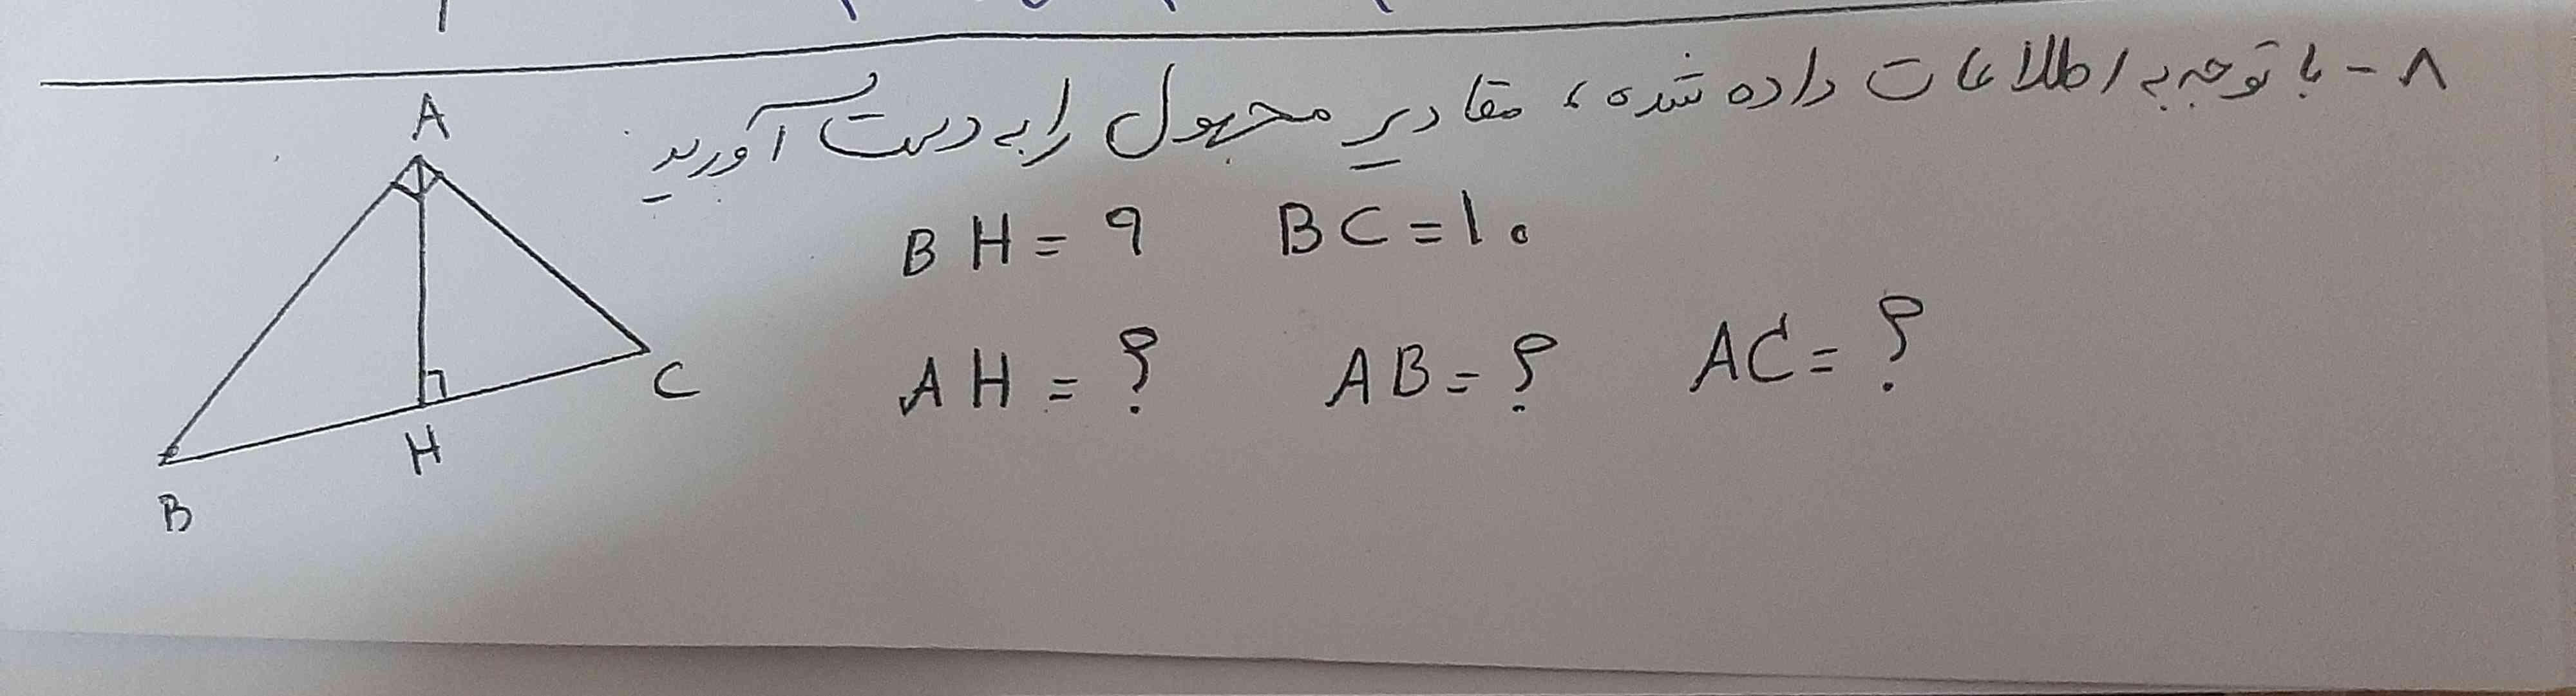 ۸- با توجه به اطلاعات داده شده، مقادیر مجهول را به دست آورید
BH = ۹ BC = ۱۰
AH = ؟ AB = ؟ AC = ؟
A
C
H
B